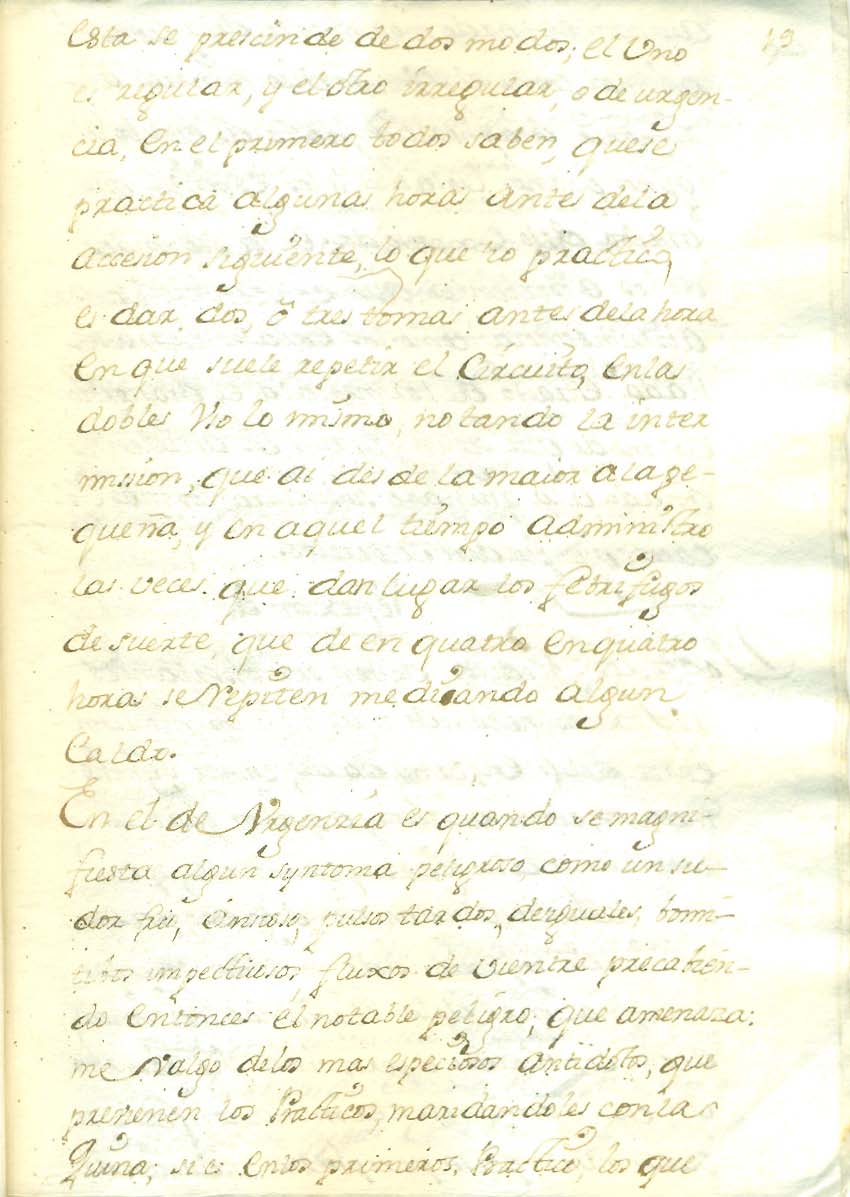 19
Esta se prescinde de dos modos; el Uno
es regular, y el otro irregular, o de urgen-
cia, En el primero todos saben, quese
practica algunas horas antes dela
accesion siguiente, lo que io practico,
es dar, dos, ô tres tomas antes dela hora
En que suele repetir el Circuito, Enlas
dobles lo mismo, notando la inter
mission, que ai desde la maior ala pe-
queña, y en aquel tiempo administro
las veces que dan lugar los febrifugos
de suerte, que de en quatro Enquatro
horas se repiten mediando algun
Caldo.
En el de Vrgenzia es quando se magni-
fiesta algun syntoma peligroso, como un su-
dor frio, ansioso, pulsos tardos, desiguales, bomi-
tibos impectuosos, fluxos de vientre precabien-
do Entonces el notable peligro, que amenaza:
me valgo delos mas especiosos antidotos, que
prebienen los Practicos, maridandoles conla
Quina; si es Enlos primeros, Practico, los que